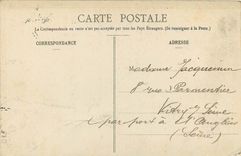 CARTE POSTALE
La Correspondance au verso n'est pas acceptée par tous les Pays Étrangers. (Se renseigner à la Poste.)
CORRESPONDANCE
ADRESSE
Madame Jacquemin
8 rue Parmentier
Vitry s/ Seine
(Seine)